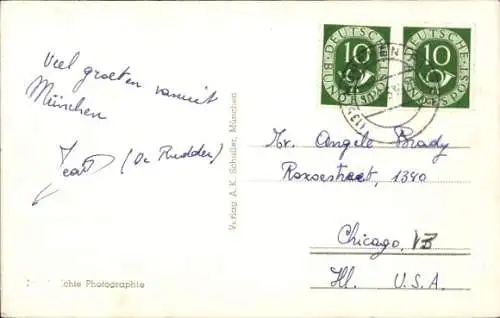 Veel groeten vanuit
München
Jean (De Ridder)
Verlag A. K. Schuller, München
chte Photographie
10 DEUTSCHE BUNDESPOST
10 DEUTSCHE BUNDESPOST
Mr. Angelo Brady
1340
Chicago,
Ill. U.S.A.